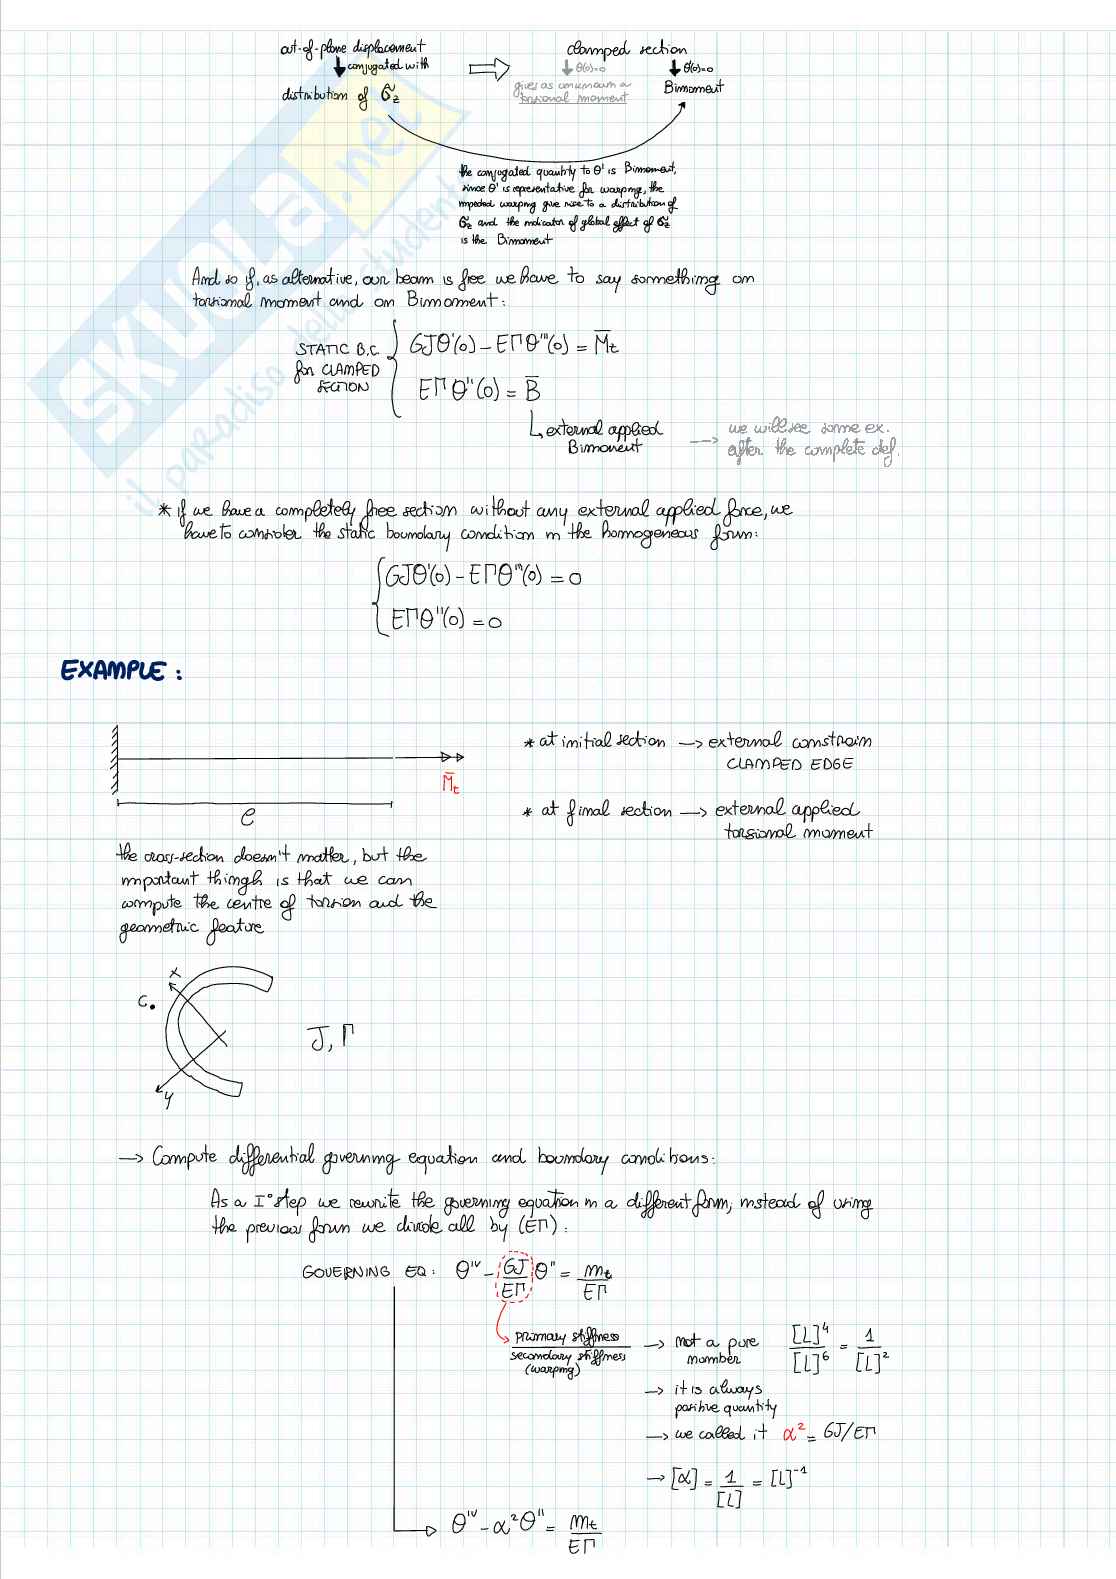 out-of-plane displacement
conjugated with
distribution of σ̃z
clamped section
θ(0)=0
gives as unknown a
torsional moment
θ'(0)=0
Bimoment
the conjugated quantity to θ' is Bimoment,
since θ' is representative for warping, the
impeded warping give rise to a distribution of
σ̃z and the indicator of global effect of σ̃z
is the Bimoment
And so if, as alternative, our beam is free we have to say something on
torsional moment and on Bimoment:
STATIC B.C.
for CLAMPED
SECTION
GJθ'(0) - EΓθ'''(0) = M̄t
EΓθ''(0) = B̄
external applied
Bimoment
→ we will see some ex.
after the complete def.
* if we have a completely free section without any external applied force, we
have to consider the static boundary condition in the homogeneous form:
GJθ'(0) - EΓθ'''(0) = 0
EΓθ''(0) = 0
EXAMPLE:
M̄t
ℓ
* at initial section → external constrain
CLAMPED EDGE
* at final section → external applied
torsional moment
the cross-section doesn't matter, but the
important thingh is that we can
compute the centre of torsion and the
geometric feature
x
C.
y
J, Γ
→ Compute differential governing equation and boundary conditions:
As a I° step we rewrite the governing equation in a different form, instead of using
the previous form we divide all by (EΓ):
GOVERNING EQ: θ^IV - GJ/EΓ θ'' = mt/EΓ
primary stiffness
secondary stiffness
(warping)
→ not a pure
number
[L]⁴/[L]⁶ = 1/[L]²
→ it is always
positive quantity
→ we called it α² = GJ/EΓ
→ [α] = 1/[L] = [L]⁻¹
θ^IV - α²θ'' = mt/EΓ
SKUOLA.net
il paradiso dello studente